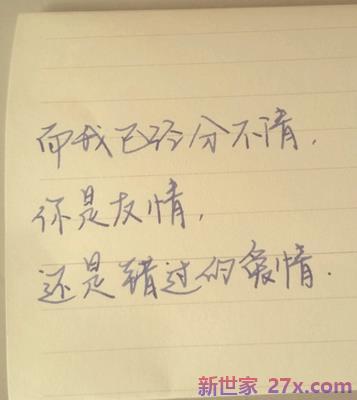 而我已经分不清，
你是友情，
还是错过的爱情．
新世家 27x.com